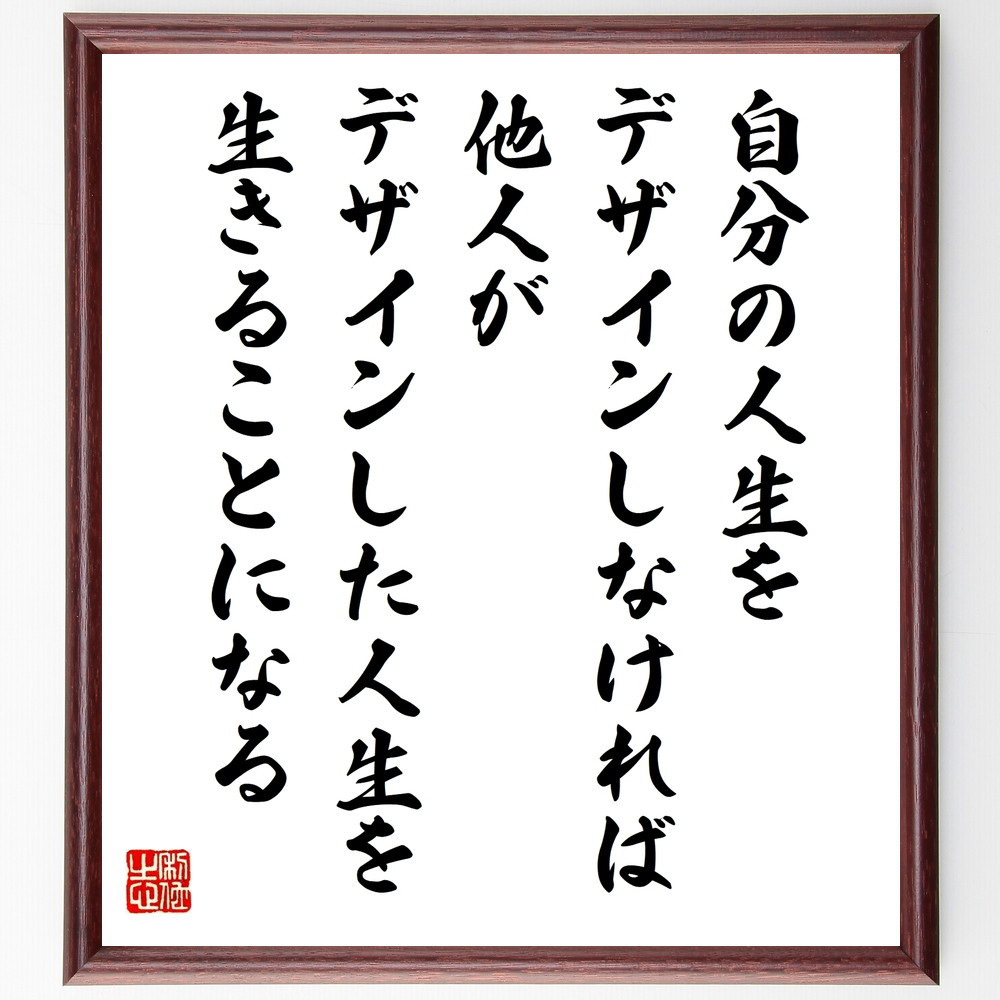 自分の人生を
デザインしなければ
他人が
デザインした人生を
生きることになる